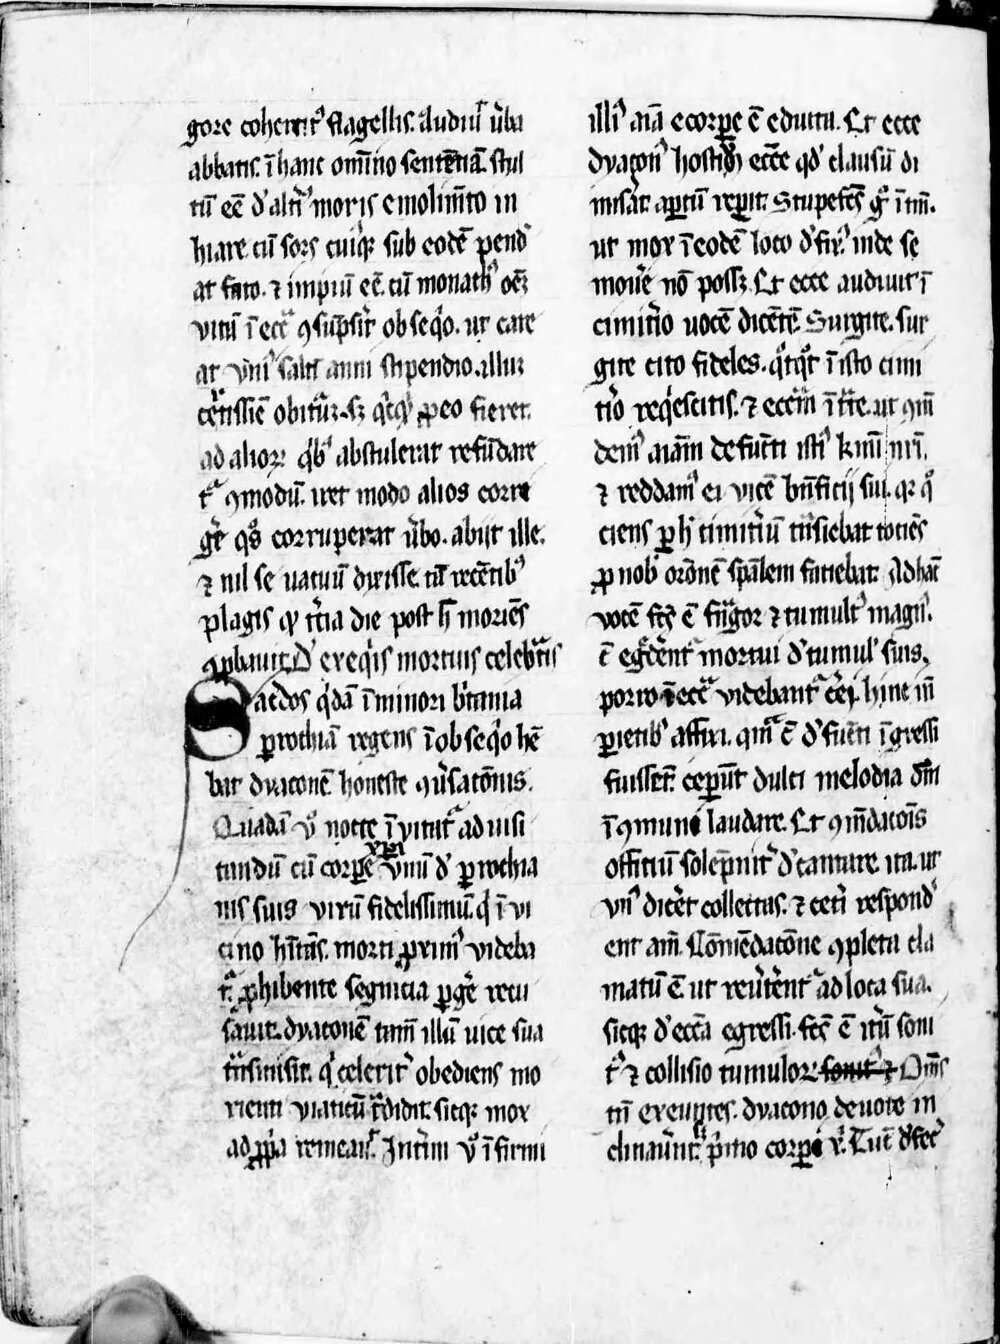 gore cohercit᷒ flagellis. Audiuit v̄ba
abbatis. ī hanc om̄ino sentētiā. stul
tū eē d᷒ alt᷒ı᷒ moris emolim̄to in
hiare. cū sors cuiꝗ sub eodē pend᷒
at fato. ⁊ impiū eē. cū monach᷒ oēꝫ
vitū ī ecc̄a ꝯsūpsit᷒ obseqͥo. ut care
at vni᷒ saltī anni stipendio. illuꝫ
cētissiē obitur̄. sꝫ qͥcqͥd ꝓ eo fieret.
ad alioꝝ qͥb᷒ abstulerat refūdare
t᷒ ꝯmodū. iret modo alios corri
ge᷒ qͦs corruperat v̄bo. abijt ille.
⁊ nil se uacuū dixisse. cū recētib᷒
plagis ꝙ t᷒cia die post h̄ moriēs
ꝓbauit. D᷒ exeqͥis mortuis celebᷓtis
Sac᷒dos qͥdā ī minori bͥtania
ꝑrochiā regens ī obseqͥo hē
bat dyaconē honeste ꝯu᷒sacōnis.
Quadā v᷒ nocte ī vitat᷒ ad uisi
tandū cū corꝑe xp̄i vnū d᷒ ꝑrochia
nis suis virū fidelissimū. qͥ ī vi
cino hītās. morti ꝓxim᷒ videba
t᷒. ꝓhibente segnicia ꝑge᷒ recu
sauit. dyaconē tn̄ illū uice sua
tᷓnsmisit. qͥ celerit᷒ obediens mo
rienti viaticū tᷓdidit. sicqꝫ mox
ad ꝓp̄a remeauit. Int᷒im v᷒ ī firmi
illi᷒ aīa e corꝑe ē educta. Et ecce
dyacon᷒ hostiū ecc̄e qd᷒ clausū di
mis᷒at. aꝑtū reꝑit. Stupefc̄s gͦ ī tm̄.
ut mox ī eodē loco d᷒fix᷒ inde se
moue᷒ nō possꝫ. Et ecce audiuit ī
cimit᷒io uocē dicētē. Surgite. sur
gite cito fideles. qͦtqͦt ī isto cimi
t᷒io reqͥescitis. ⁊ ecc̄am īt᷒te. ut ꝯm̄
dem᷒ aīam defūcti isti᷒ kmī nr̄i.
⁊ reddam᷒ ei vicē bn̄ficij sui. qꝛ qͦ
ciens ꝑ h̄ cimit᷒iū tᷓnsiebat tociēs
ꝓ nob᷒ orōnem spālem faciebat. Ad hāc
vocē fc̄s ē fᷓgor ⁊ tumult᷒ magn᷒.
ē eg᷒dient᷒ mortui d᷒ tumul᷒ suis.
porro ī ecc̄a videbant᷒ c᷒ei. hinc in̄
ꝑietib᷒ affixi. qm̄ ē d᷒fūcti īgressi
fuisset᷒. ceꝑūt dulci melodia dm̄
ī ꝯmuni laudare. Et ꝯm̄dacōis
officiū solēpnit᷒ d᷒cantare. ita. ut
vn᷒ dice᷒t collectas. ⁊ cet᷒i respond᷒
ent am̄. Cōmēdacōne ꝯpleta cla
matū ē. ut reu᷒tent᷒ ad loca sua.
sicqꝫ d᷒ ecc̄a egressi. fc̄s ē itū soni
t᷒ ⁊ collisio tumuloꝝ sonit᷒ ⁊ Om̄s
tn̄ exeuntes. dyacono deuote in
clinauūt. ꝓ īmo corꝑi x̄. Tūc d᷒fec᷒